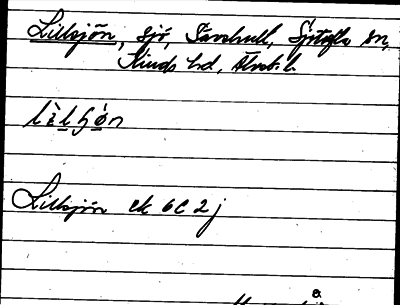 Lillsjön, sjö, Tarshult, Sjötofta sn,
Kinds hd, Älvsb. l.
Lillsjön ek 6C 2j
a